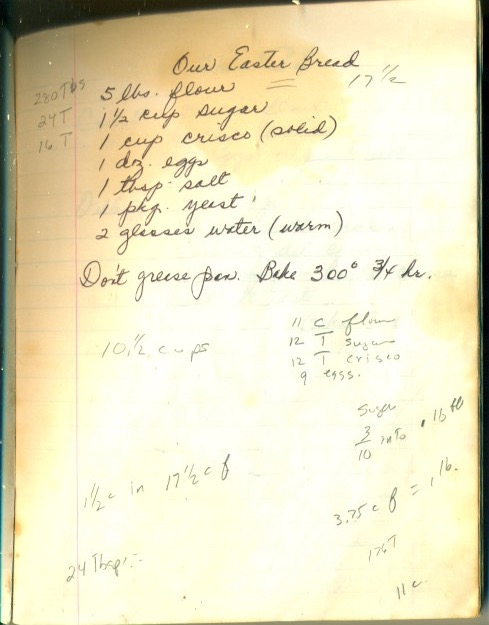 Our Easter Bread
17 1/2
280 Tbs 5 lbs. flour
24 T 1 1/2 cup sugar
16 T 1 cup crisco (solid)
1 doz. eggs
1 tbsp. salt
1 pkg. yeast
2 glasses water (warm)
Don't grease pan. Bake 300° 3/4 hr.
11 c flour
10 1/2 cups
12 T sugar
12 T crisco
9 eggs.
sugar
3/10 into 1 lb fl
1 1/2 c in 17 1/2 c f
3.75 c f = 1 lb.
176 T
24 Tbsp.
11 c.